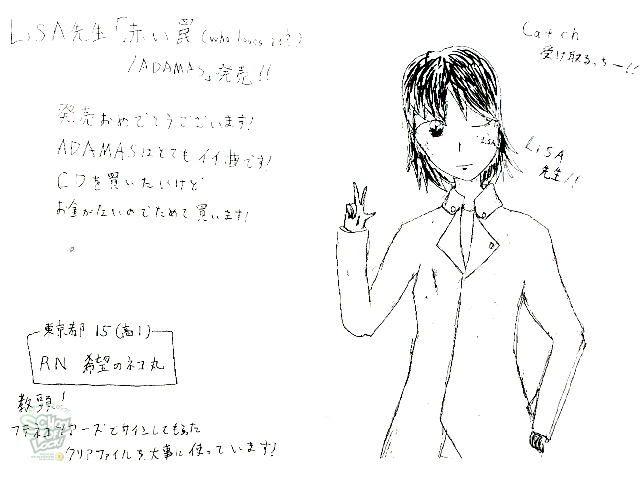 LiSA先生「赤い罠(who loves it?)
/ADAMAS」発売!!
発売おめでとうございます!
ADAMASはとてもイイ曲です!
CDを買いたいけど
お金がないのでためて買います!
Catch
受け取るっちー!!
LiSA
先生!!
東京都 15(高1)
RN 希望のネコ丸
教頭!
サインしてもらった
クリアファイルを大事に使っています!
SCHOOL OF LOCK!